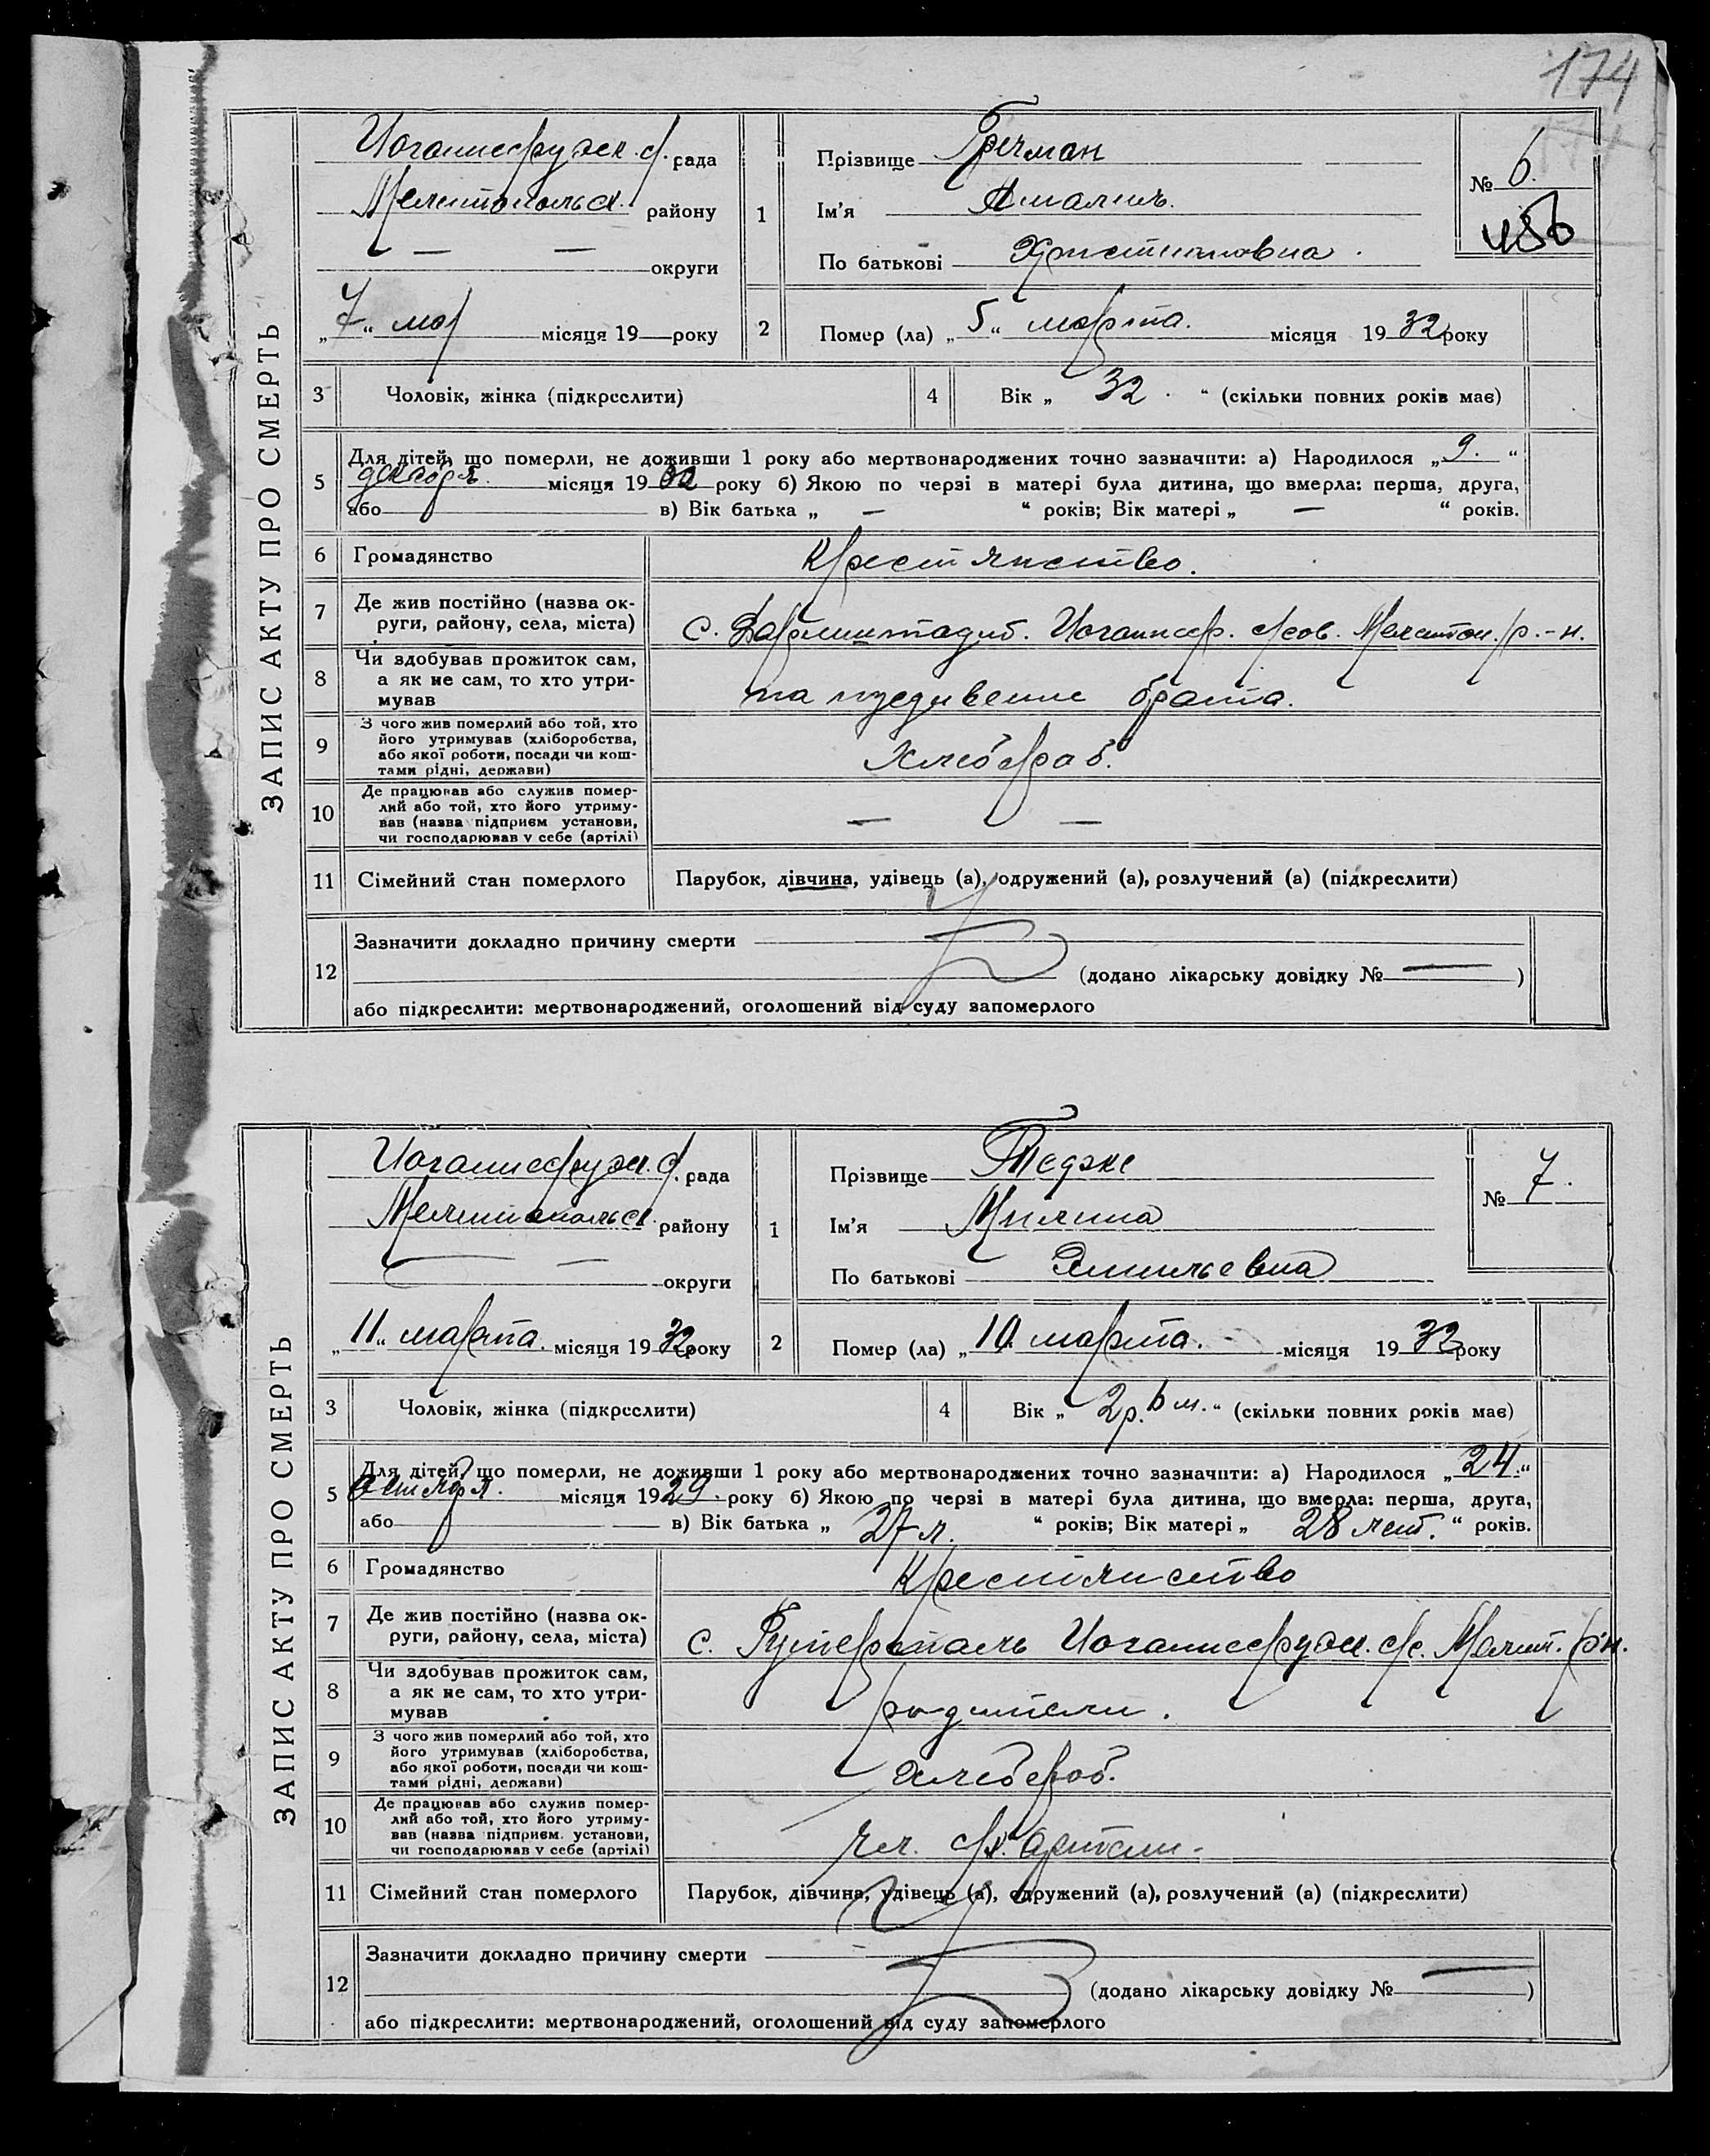 174
ЗАПИС АКТУ ПРО СМЕРТЬ
Иоганнесфуэск. с. рада
Мелитопольск. району
— — округи
„7“ мар місяця 19 — року
1
Прізвище Гречман
Ім'я Амалия.
По батькові Христиановна.
№ 6.
456
2 Помер (ла) „5“ марта. місяця 1932 року
3 Чоловік, жінка (підкреслити)
4 Вік „32.“ (скільки повних років має)
5 Для дітей, що померли, не доживши 1 року або мертвонароджених точно зазначити: а) Народилося „9.“
декабря. місяця 19 року б) Якою по черзі в матері була дитина, що вмерла: перша, друга,
або в) Вік батька „ — “ років; Вік матері „ — “ років.
6 Громадянство Крестянство.
7 Де жив постійно (назва ок-
руги, району, села, міста) с. Дармштадт. Иоганнесф. с/сов. Мелитоп. р.-н.
8 Чи здобував прожиток сам,
а як не сам, то хто утри-
мував на иждивение брата.
9 З чого жив померлий або той, хто
його утримував (хліборобства,
або якої роботи, посади чи кош-
тами рідні, держави) Хлебороб.
10 Де працював або служив помер-
лий або той, хто його утриму-
вав (назва підприєм установи,
чи господарював у себе (артілі) — —
11 Сімейний стан померлого Парубок, дівчина, удівець (а), одружений (а), розлучений (а) (підкреслити)
12 Зазначити докладно причину смерти
(додано лікарську довідку № — )
або підкреслити: мертвонароджений, оголошений від суду запомерлого
ЗАПИС АКТУ ПРО СМЕРТЬ
Иоганнесфуэск. с. рада
Мелитопольск. району
— — округи
„11“ марта. місяця 1932 року
1
Прізвище Тедэке
Ім'я Милина
По батькові Эмильевна
№ 7.
2 Помер (ла) „10. марта. місяця 1932 року
3 Чоловік, жінка (підкреслити)
4 Вік „2р. 6 м.“ (скільки повних років має)
5 Для дітей, що померли, не доживши 1 року або мертвонароджених точно зазначити: а) Народилося „24.“
місяця 1929. року б) Якою по черзі в матері була дитина, що вмерла: перша, друга,
або в) Вік батька „27 л. “ років; Вік матері „28 лет. “ років.
6 Громадянство Крестянство
7 Де жив постійно (назва ок-
руги, району, села, міста) с. Гутерталь Иоганнесфуэск. с/с. Мелит. р-н.
8 Чи здобував прожиток сам,
а як не сам, то хто утри-
мував родители.
9 З чого жив померлий або той, хто
його утримував (хліборобства,
або якої роботи, посади чи кош-
тами рідні, держави) Хлебороб.
10 Де працював або служив помер-
лий або той, хто його утриму-
вав (назва підприєм. установи,
чи господарював у себе (артілі) Чл. с/х. артели.
11 Сімейний стан померлого Парубок, дівчина, удівець (а), одружений (а), розлучений (а) (підкреслити)
12 Зазначити докладно причину смерти
(додано лікарську довідку № — )
або підкреслити: мертвонароджений, оголошений від суду запомерлого